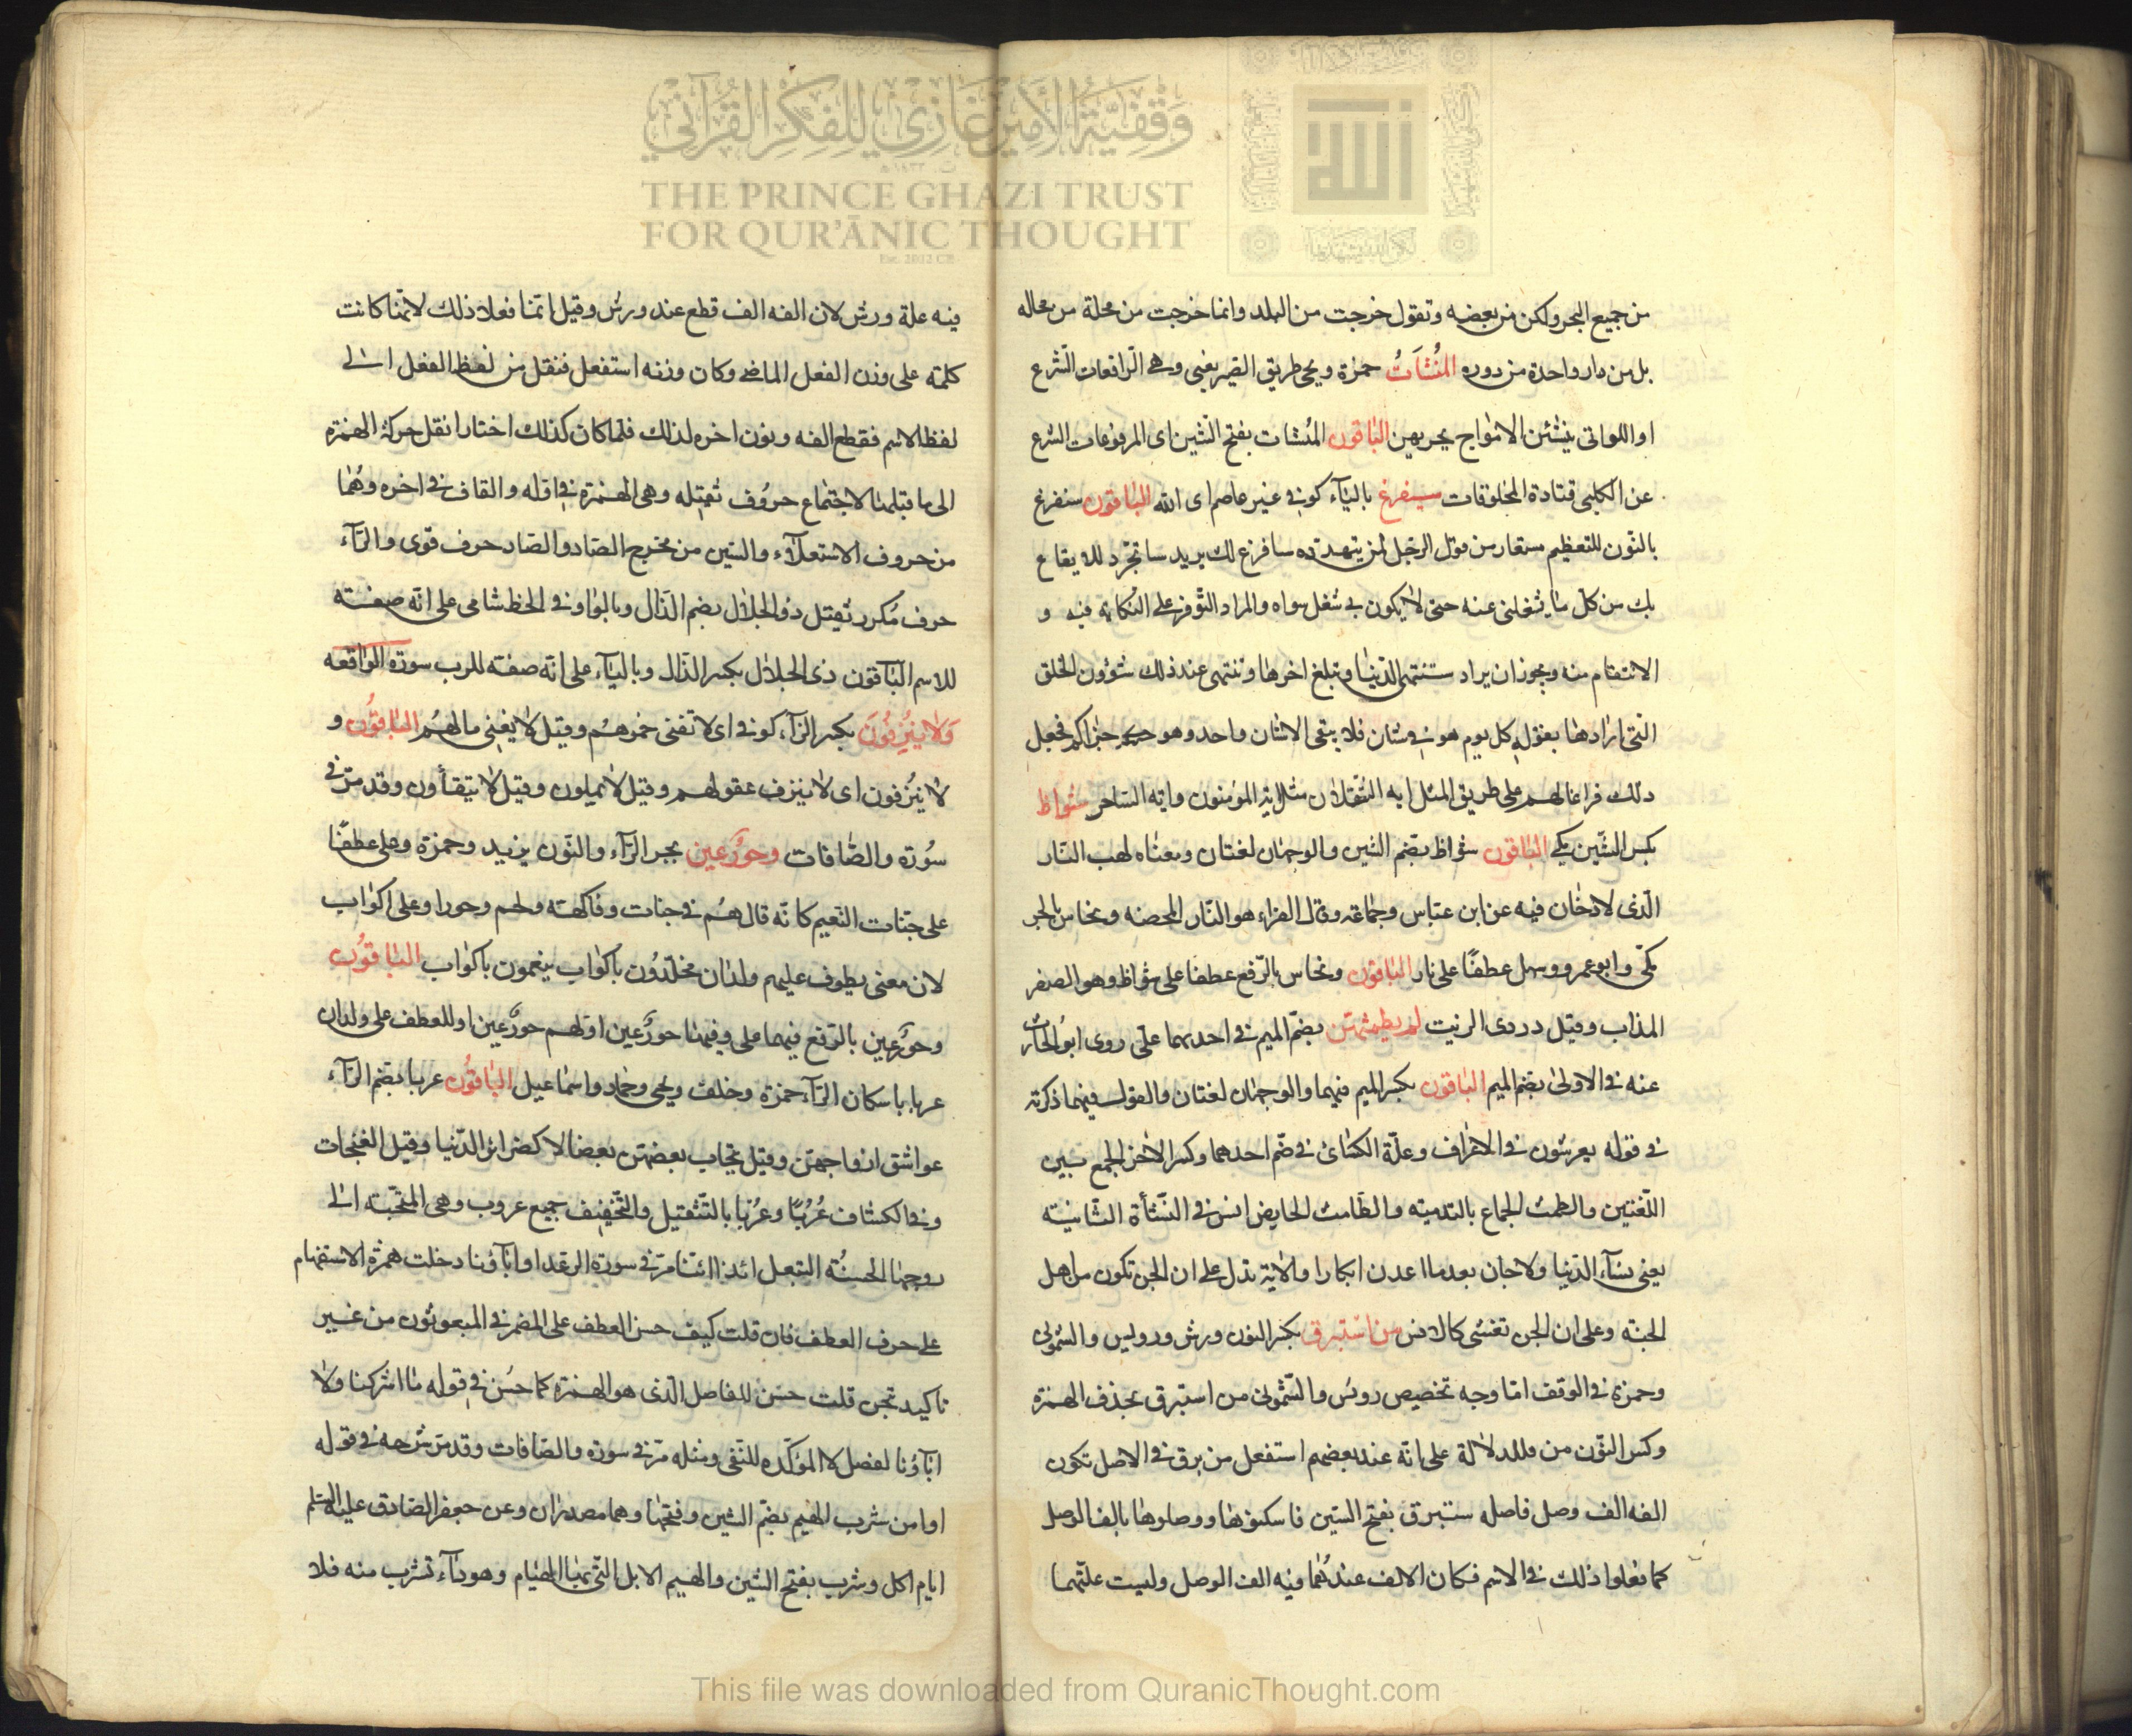 وقفية الأمير غازي للفكر القرآني
THE PRINCE GHAZI TRUST
FOR QUR'ĀNIC THOUGHT
Est. 2012 CE
الله
من جميع البحر ولكن من بعضه وتقول خرجت من البلد وانما خرجت من محلة من محاله
بل من دار واحدة من دوره المُنْشَآتُ حمزة ويحيى طريق وهي الرّافعات الشّرع
او اللواتي ينشئن الامواج بجريهن الباقون المُنشات بفتح الشّين اى المرفوعات الشرع
عن الكلبي قتادة المخلوقات سيفرغ باليآء كوفي غير عاصم اى الله الباقون سنفرغ
بالنّون للتعظيم مستعار من قول الرجل لمن يتهدّده سافرغ لك يريد ساتجرّد للايقاع
بك من كلّ ما يشغلني عنه حتى لا يكون لي شغل سواه والمراد التّوفر على النّكاية فيه و
الانتقام منه ويجوز ان يراد ستنتهى الدّنيا وتبلغ اخرها وتنتهى عند ذلك شؤون الخلق
الّتى ارادها بقوله كل يوم هو في شان فلا يبقى الا شان واحد وهو جزاكم فجعل
ذلك فراغا لهم على طريق المثل ايه الثّقلان مثل ايّه المؤمنون وايّه السّاحر شواظ
بكسر الشّين مكي الباقون شواظ بضم الشين والوجهان لغتان ومعناه لهب النّار
الّذى لا دخان فيه عن ابن عبّاس وجماعة وقال الفراء هو النّار المحضه ونحاس بالجر
مكّى وابو عمرو وسهل عطفًا على نار الباقون ونحاس بالرّفع عطفا على شواظ وهو الصفر
المذاب وقيل دردى الزيت لم يطمثهنّ بضمّ الميم في احديهما علىّ روى ابو الحارث
عنه في الاولى بضم الميم الباقون بكسر الميم فيهما والوجهان لغتان والقول فيهما ذكرته
في قوله يعرشون في الاعراف وعلّة الكسائى في ضّم احدهما وكسر الاخر الجمع بين
اللّغتين والطمث الجماع بالتدمية والطّامث الحايض انس في النّشأة الثّانية
يعنى نسآء الدّنيا ولا جان بعد ما اعدن ابكارا والاية تدل على ان الجن تكون من اهل
الجنّة وعلى ان الجن تغشى كالانس من اسْتبرق بكسر النون ورش ورويس والشّمونى
وحمزة في الوقف امّا وجه تخصيص رويس والشّمونى من استبرق بحذف الهمزة
وكسر النّون من فللدلالة على انّه عند بعضهم استفعل من برق في الاصل تكون
الفه الف وصل فاصله ستبرق بفتح السّين فاسكنوها ووصلوها بالف الوصل
كما فعلوا ذلك في الاسم فكان الالف عندهما فيه الف الوصل وليست علّتهما
فيه علة ورش لان الفه الف قطع عند ورش وقيل انّما فعلا ذلك لانّها كانت
كلمة على وزن الفعل الماضى وكان وزنه استفعل فنقل من لفظ الفعل الى
لفظ الاسم فقطع الفه ونون اخره لذلك فلما كان كذلك اختارا نقل حركة الهمزة
الى ما قبلها لاجتماع حروُف ثقيله وهى الهمزة في اوّله والقاف في اخره وهُما
من حروف الاستعلآء والسّين من مخرج الصّاد والصّاد حرف قوى والرّآء
حرف مُكرر ثقيل ذُو الجلال بضم الذّال وبالواو في الخط شامى على انّه صفته
للاسم الباقون ذى الجلال بكسر الذّال وباليآء على انّه صفته للرب سورة الواقعة
وَلا يُنْزِفُونَ بكسر الزآء كوفي اى لا تفنى خمرهم وقيل لا يفنى مالهُم الباقُون و
لا يُنزَفون اى لا ينزف عقولهم وقيل لا يميلون وقيل لا يتقيأون وقد مرّ في
سُورة والصّافات وحورٌ عين بجر الرّآء والنّون يزيد وحمزة وعلى عطفًا
على جنّات النّعيم كانّه قال هُم في جنات وفاكهة ولحم وحورا وعلى اكواب
لان معنى يطوف عليهم ولدان مخلّدوُن باكواب ينعمون باكواب الباقوُن
وحورٌ عين بالرّفع فيهما على وفيها حورٌ عين او لهم حورٌ عين او للعطف على ولدان
عربا باسكان الرّآء حمزة وخلف ويحيى وحماد واسماعيل الباقوُن عربا بضم الرّآء
عواشق ازواجهنّ وقيل تحابّ بعضهنّ بعضا لا كضرائر الدّنيا وقيل الغنجات
وفي الكشّاف عُرُبًا وعُرْبًا بالتّثقيل والتّخفيف جميع عروب وهى المتحبّبة الى
زوجها الحسنُة التبعل ائذا ائنّا مرّ في سورة الرعد اوابآؤنا دخلت همزة الاستفهام
على حرف العطف فان قلت كيف حسن العطف على المضمر في المبعوثون من غير
تاكيد بنحن قلت حسن للفاصل الّذى هو الهمزة كما حسُن في قوله ما اشركنا ولا
ابآؤنا لفصل لا المؤكّده للنّفى ومثله مرّ في سورة والصّافات وقد مرّ شرحه في قوله
اوامن شرب الهيم بضمّ الشين وفتحها وهما مصدران وعن جعفر الصّادق عليه السّلم
ايام اكل وشرب بفتح الشّين والهيم الابل الّتى بها الهيام وهو دآء تشرب منه فلا
This file was downloaded from QuranicThought.com